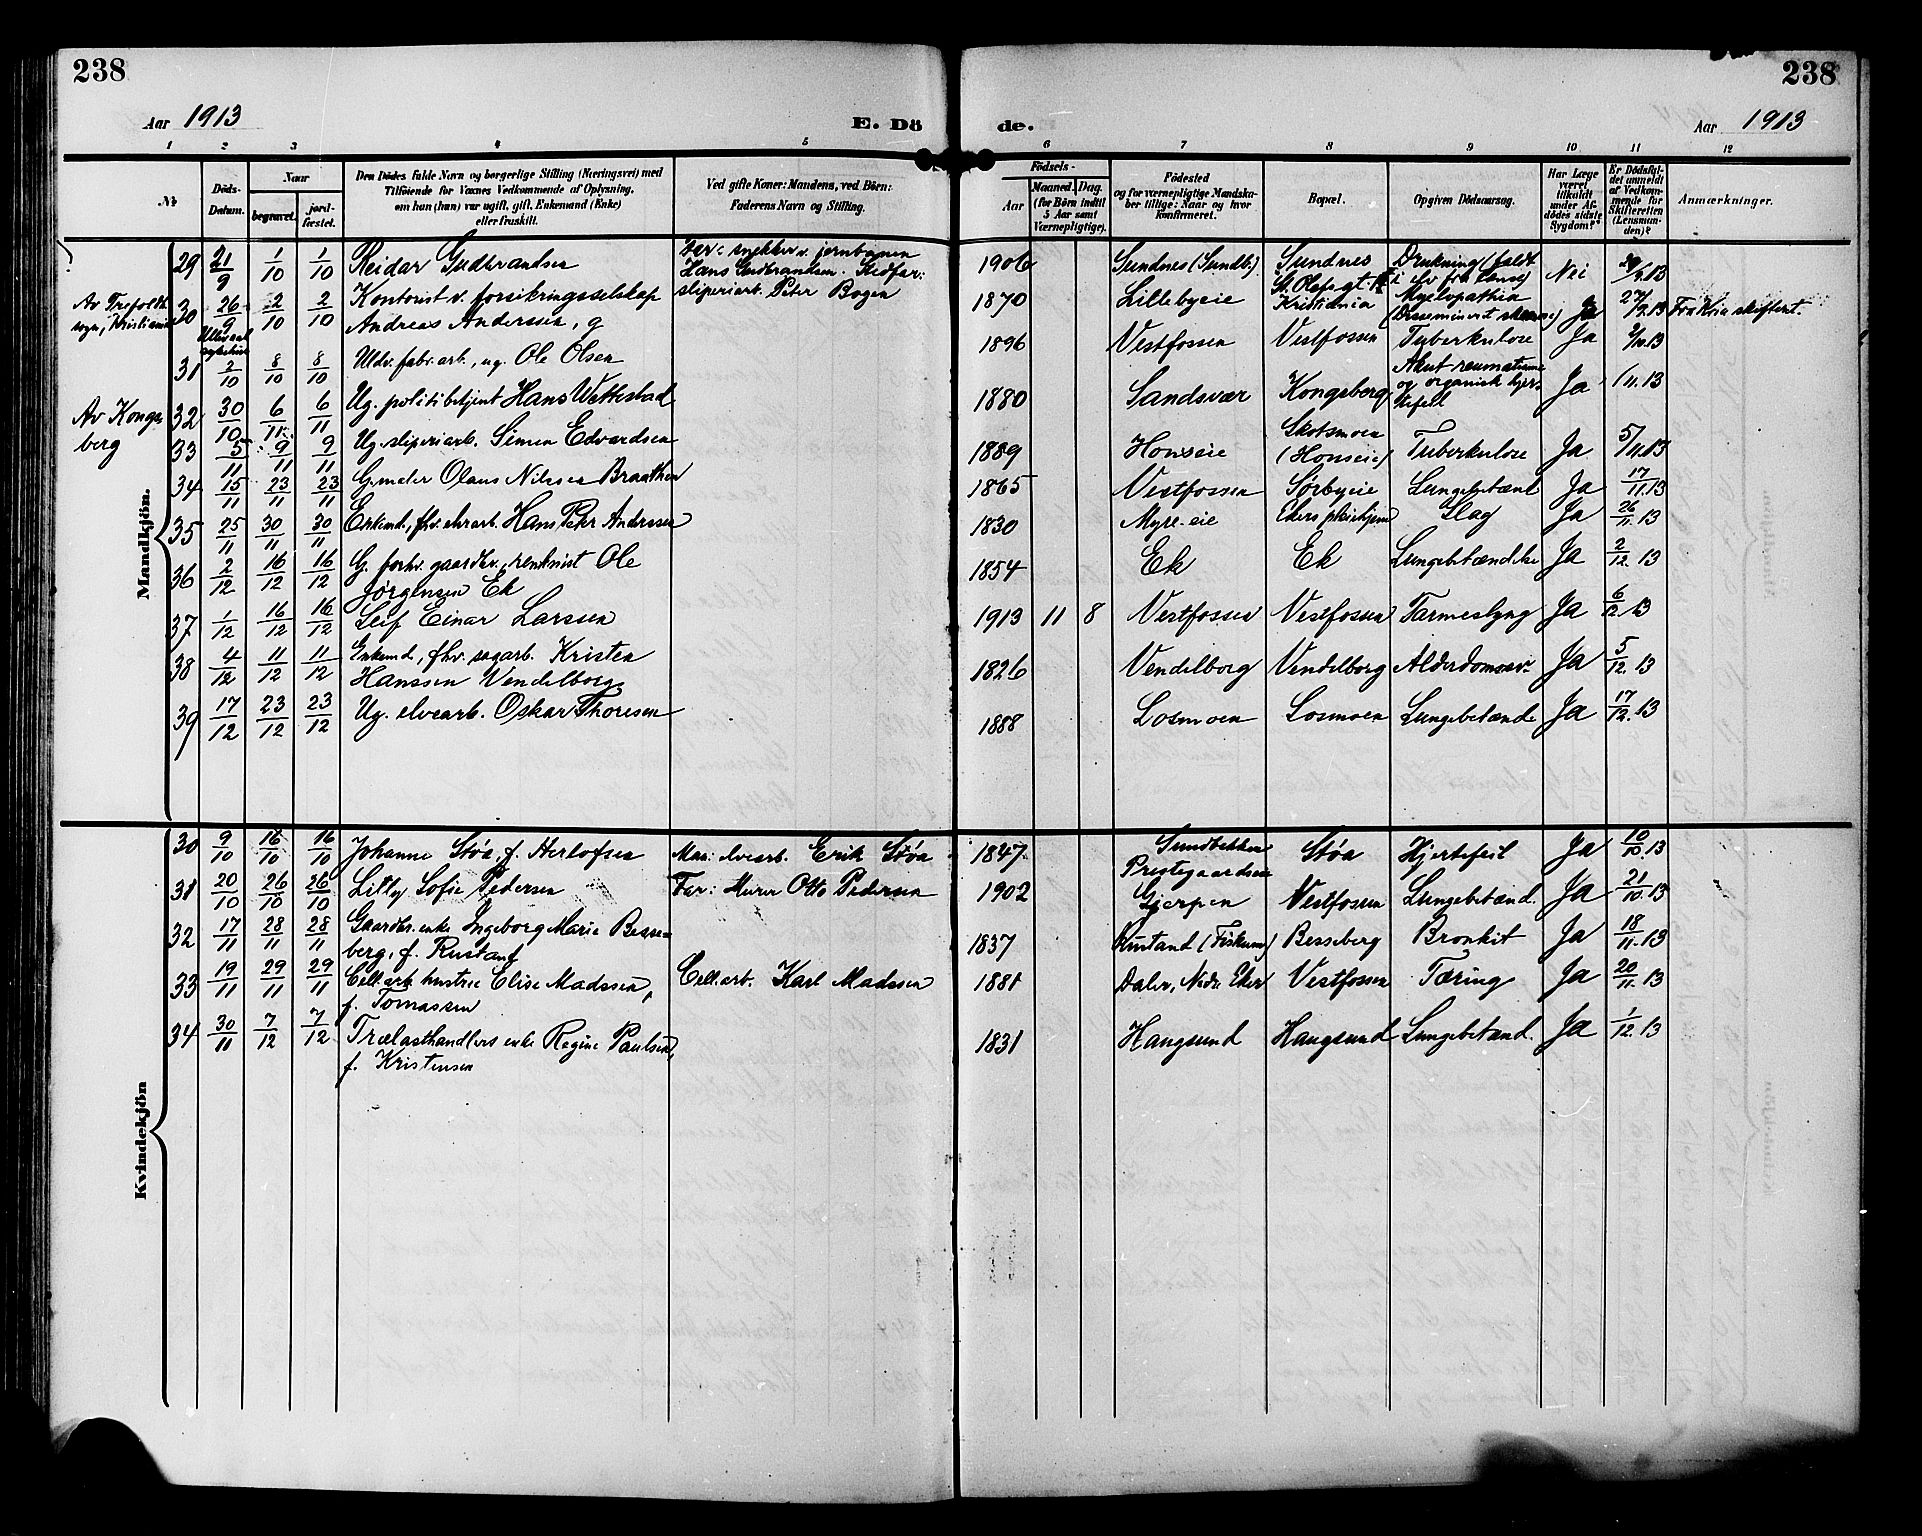 238
238
Aar 1913
E. Dö
de.
Aar 1913
1 2 3 4 5 6 7 8 9 10 11 12
№
Döds-
Datum.
Naar
begravet.
jord-
fæstet.
Den Dödes fulde Navn og borgerlige Stilling (Næringsvei) med
Tilföiende for Voxnes Vedkommende af Oplysning,
om han (hun) var ugift, gift, Enkemand (Enke)
eller fraskilt.
Ved gifte Koner: Mandens, ved Börn:
Faderens Navn og Stilling.
Födsels-
Aar
Maaned. Dag.
(for Börn indtil
5 Aar samt
Værnepligtige).
Födested
og for værnepligtige Mandska-
ber tillige: Naar og hvor
konfirmeret.
Bopæl.
Opgiven Dödsaarsag.
Har Læge
været
tilkaldt
under Af-
dödes sidste
Sygdom?
Er Dödsfal-
det anmeldt
af Vedkom-
mende for
Skifteretten
(Lensman-
den)?
Anmærkninger.
Mandkjön.
29 21/9 1/10 1/10 Reidar Gudbrandsen
Far: snekker v. jernbygnen
Hans Gudbrandsen.
sliperiarb. Peter Bogen
1906 Sundnes (Sundb.) Sundnes Drukning (faldt
i elv fra Nei 13
Av Trefoldh.
sogn, Kristiania
30 26/9 2/10 2/10 Kontorist v. forsikringsselskap
Andreas Anderssen, g
Ullevaal
sykehus
1870 Lillebyeie St. Olafs gt.
Kristiania Myelopathia
(Dissemineret Ja 13 Fra Kria skifteret.
31 2/10 8/10 8/10 Uldv. fabr. arb., ug. Ole Olsen 1896 Vestfossen Vestfossen Tuberkulose Ja 13
Av Kongs
berg
32 30/10 6/11 6/11 Ug. politibetjent Hans Wettestad 1880 Sandsvær Kongsberg Akut reumatisme
og organisk hjer-
tefeil Ja 1/11.13
33 5/11 9/11 9/11 Ug. sliperiarb. Simen Edvardsen 1889 Honseie Skotsmoen
(Honseie) Tuberkulose Ja 5/11.13
34 15/11 23/11 23/11 G. maler Olaus Nilssen Braathen 1865 Vestfossen Sørbyeie Lungebetænd Ja 17/11.13
35 25/11 30/11 30/11 Enkemd., fhv. elvearb. Hans Peter Anderssen 1830 Myre-eie Ekers pleiehjem Slag Ja 26/11 13
36 2/12 16/12 16/12 G. forhv. gaardbr., rentenist Ole
Jørgensen Ek 1854 Ek Ek Lungebetændelse Ja 2/12.13
37 1/12 16/12 16/12 Leif Einar Larssen 1913 11 8 Vestfossen Vestfossen Tarmeslyng Ja 6/12 13
38 4/12 11/12 11/12 Enkemd., fhv. sagarb. Kristen
Hanssen Vendelborg 1826 Vendelborg Vendelborg Alderdomssv. Ja 5/12.13
39 17/12 23/12 23/12 Ug. elvearb. Oskar Thoresen 1888 Losmoen Losmoen Lungebetænde Ja 17/12.13
Kvindekjön
30 9/10 16/10 16/10 Johanne Støa, f. Herlofsen Man: elvearb. Erik Støa 1847 Sundbakken
Prestegaardseie Støa Hjertefeil Ja 10/10.13
31 20/10 26/10 26/10 Lilly Sofie Pedersen Far: Murer Otto Pedersen 1902 Gjerpen Vestfossen Lungebetænd. Ja 21/10.13
32 17/11 28/11 28/11 Gaardbr. enke Ingeborg Marie Besse-
berg, f. Rustand 1837 Rustand (Fiskum) Besseberg Bronkit Ja 18/11.13
33 19/11 29/11 29/11 Cell.arb. hustru Elise Madssen,
f. Tomassen Cell.arb. Karl Madssen 1881 Daler, Nedre Eker Vestfossen Tæring Ja 20/11.13
34 30/11 7/12 7/12 Trælasthandlers enke Regine Paulsen,
f. Kristensen 1831 Haugsund Haugsund Lungebetænd. Ja 1/12.13